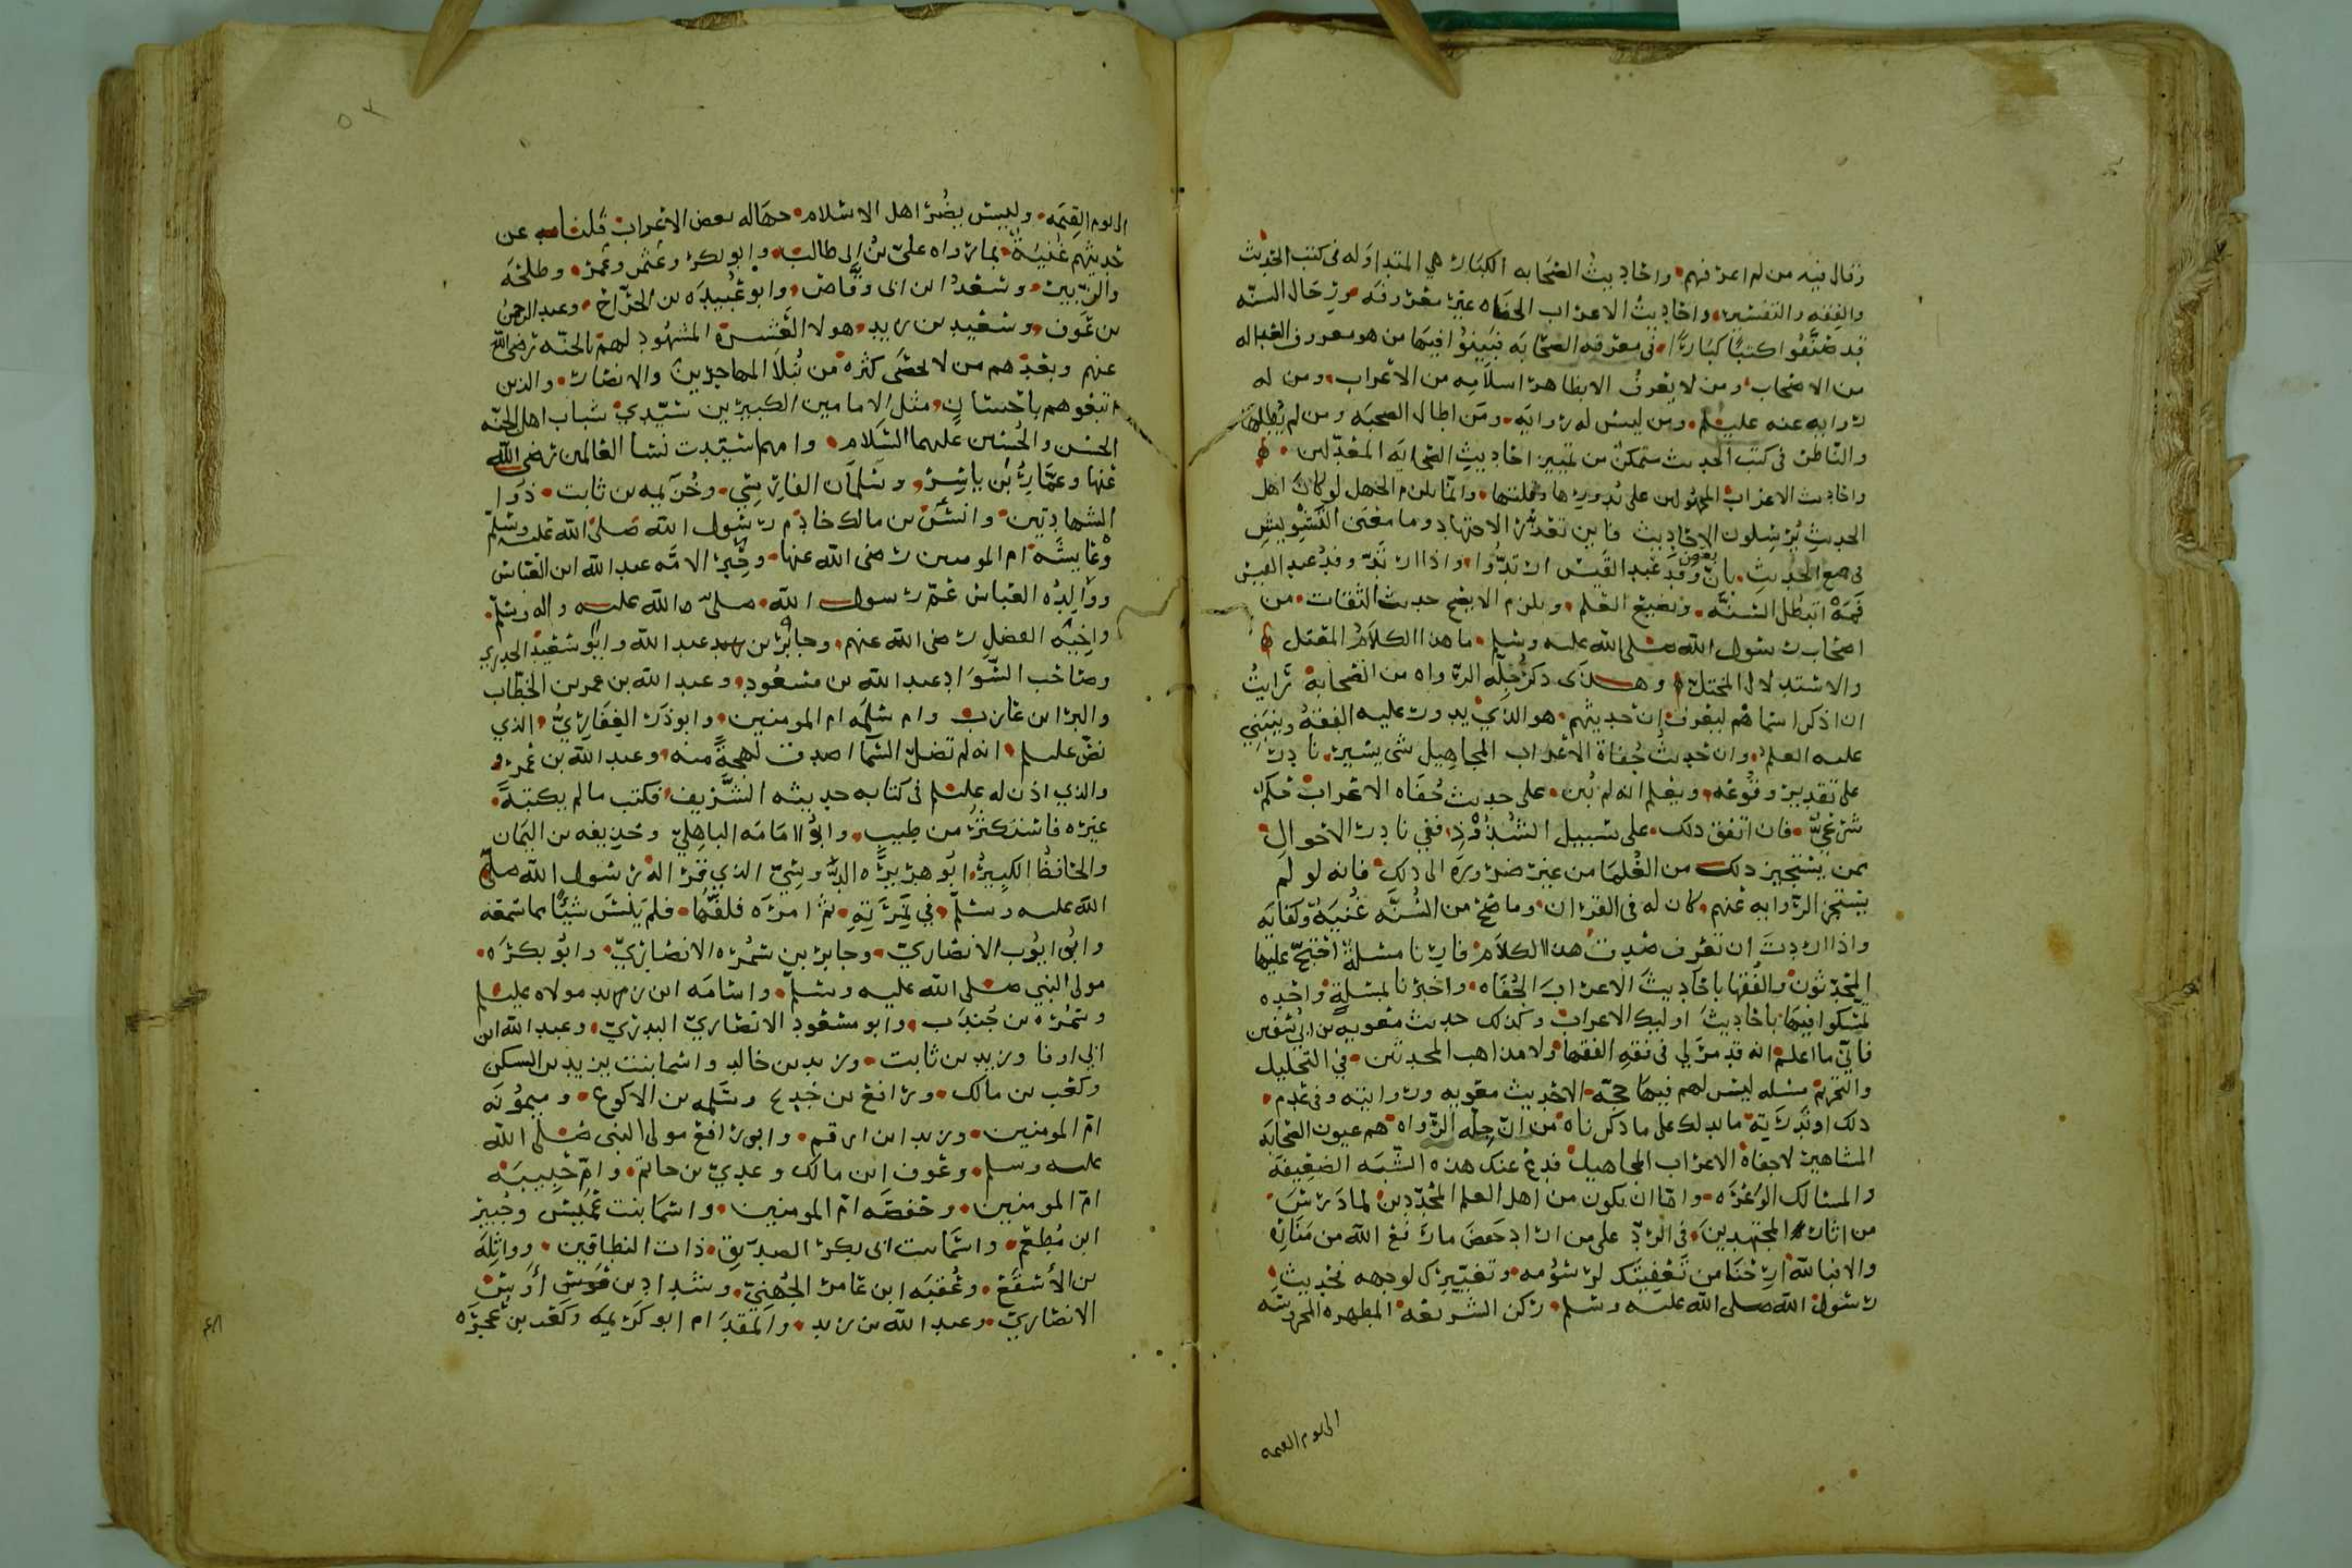 وقال فيه من لم اعرفهم واحاديث الصحابه الكبار هي المتداوله في كتب الحديث
والفقه والتفسير واحاديث الاعراب الجفاه غير معروفه ورجال السنه
قد صنفوا كتبا كبارا في معرفه الصحابه فبينوا فيها من هو معروف العداله
من الاصحاب ومن لا يعرف الا بظاهر اسلامه من الاعراب ومن له
روايه عنه عليلم ومن ليس له روايه ومن اطال الصحبه ومن لم يطلها
والناظر في كتب الحديث متمكن من تمييز احاديث الصحابه المعدلين
واحاديث الاعراب المجهولين على ندورها وقلتها وانما يلزم الجهل لو كان اهل
الحديث يرسلون الاحاديث فاين تعذر الاجتهاد وما معنى التشويش
في جمع الحديث بان بعض وفد عبد القيس ارتدوا واذا ارتد وفد عبد القيس
فمه اتبطل السنه ونضيع العلم ويلزم الا يصح حديث الثقات من
اصحاب رسول الله صلى الله عليه وسلم ما هذا الكلام المعتل
والاستدلال المختل وهذى ذكر جله الرواه من الصحابه رايت
ان اذكر اسماهم ليعرف ان حديثهم هو الذي يدور عليه الفقه وينبني
عليه العلم وان حديث جفاة الاعراب المجاهيل شي يسير نادر
على تقدير وقوعه ويعلم انه لم يبن على حديث جفاه الاعراب حكم
شرعي فان اتفق ذلك على سبيل الشذوذ ففي نادر الاحوال
ممن يستجيز ذلك من العلما من غير ضروره الى ذلك فانه لو لم
يستجز الروايه عنهم كان له في القران وما صح من السنه غنيه وكفايه
واذا اردت ان تعرف صدق هذا الكلام فارنا مسئلة احتج عليها
المحدثون والفقها باحاديث الاعراب الجفاه واخبرنا بمسئلة واحده
تمسكوا فيها باحاديث اوليك الاعراب وكذلك حديث معويه بن ابي سفين
فاني ما اعلم انه قد مر لي في فقه الفقها ولا مذاهب المحدثين في التحليل
والتحريم مسئله ليس لهم فيها حجة الا حديث معويه وروايته وفي عدم
ذلك او ندرته ما يدلك على ما ذكرناه من ان جله الرواه هم عيون الصحابه
المشاهير لا جفاة الاعراب المجاهيل فدع عنك هذه الشبه الضعيفه
والمسالك الوعره واما ان يكون من اهل العلم المجددين لما درس
من اثار المجتهدين في الرد على من اراد خفض ما رفع الله من مناره
والا فبالله ارحنا من تعفيتك لرسومه وتغييرك لوجهه فحديث
رسول الله صلى الله عليه وسلم ركن الشريعه المطهره المحروسه
الى يوم القيمه
الى يوم القيمه وليس يضر اهل الاسلام جهاله بعض الاعراب قلنا عن
حديثهم غنية بما رواه علي بن ابي طالب وابو بكر وعثمن وعمر وطلحه
والزبير وسعد ابن ابى وقاص وابو عبيده بن الجراح وعبد الرحمن
بن عوف وسعيد بن زيد هولا العشرة المشهود لهم بالجنه رضي الله
عنهم وبعدهم من لا يحصى كثره من نبلا المهاجرين والانصار والذين
اتبعوهم باحسان مثل الامامين الكبيرين سيدي شباب اهل الجنه
الحسن والحسين عليهما السلام وامهما سيدت نسا العالمين رضى الله
عنها وعمار بن ياسر وسلمان الفارسي وخزيمه بن ثابت ذوا
الشهادتين وانس بن مالك خادم رسول الله صلى الله عليه وسلم
وعايشه ام المومنين رضى الله عنها وحبر الامه عبد الله ابن العباس
ووالده العباس عم رسول الله صلى الله عليه واله وسلم
واخيه الفضل رضى الله عنهم وجابر بن عبد الله وابو سعيد الخدري
وصاحب السواد عبد الله بن مسعود وعبد الله بن عمر بن الخطاب
والبرا بن عازب وام سلمه ام المومنين وابو ذر الغفاري الذي
نص عليلم انه لم تضل السما اصدق لهجة منه وعبد الله بن عمرو
والذي اذن له عليلم في كتابه حديثه الشريف فكتب مالم يكتبه
غيره فاستكثر من طيب وابو امامه الباهلي وحذيفه بن اليمان
والحافظ الكبير ابو هريره الدوسي الذي قرا له رسول الله صلى
الله عليه وسلم في نمرته ثم امره فلفها فلم ينس شيئا مما سمعه
وابو ايوب الانصاري وجابر بن سمره الانصاري وابو بكره
مولى النبي صلى الله عليه وسلم واسامه ابن زيد مولاه عليلم
وسمره بن جندب وابو مسعود الانصاري البدري وعبد الله ابن
ابي اوفا وزيد بن ثابت وزيد بن خالد واسما بنت يزيد بن السكن
وكعب بن مالك ورافع بن خديج وسلمه بن الاكوع وميمونه
ام المومنين وزيد ابن ارقم وابو رافع مولى النبي صلى الله
عليه وسلم وعوف ابن مالك وعدي بن حاتم وام حبيبه
ام المومنين وحفصه ام المومنين واسما بنت عميس وجبير
ابن مطعم واسما بنت ابى بكر الصديق ذات النطاقين وواثله
بن الاسقع وعقبه ابن عامر الجهني وشداد بن اوس
الانصاري وعبد الله بن زيد والمقدام ابو كريمه وكعب بن عجره